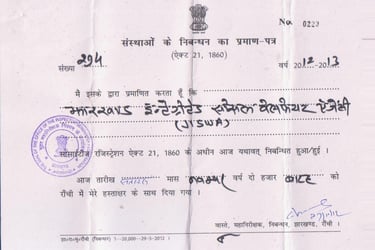 No 0220
संस्थाओं के निबन्धन का प्रमाण-पत्र
(ऐक्ट 21, 1860)
संख्या 294 वर्ष 2012-2013
मैं इसके द्वारा प्रमाणित करता हूँ कि
झारखण्ड इन्टेग्रेटेड सोशल वेलफेयर ऐजेंसी
(JISWA)
सोसाईटीज रजिस्ट्रेशन ऐक्ट 21, 1860 के अधीन आज यथावत् निबन्धित हुआ/हुई ।
आज तारीख मास नवम्बर वर्ष दो हजार बारह को
राँची में मेरे हस्ताक्षर के साथ दिया गया ।
वास्ते, महानिरीक्षक, निबन्धन, झारखण्ड, राँची ।